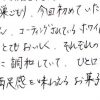 巣ごもり、今回初めていた
ん、コーティングされているホワイト
とてもおいしく、それぞれの
に調和していて、ひと口
満足感を味わえるお菓子